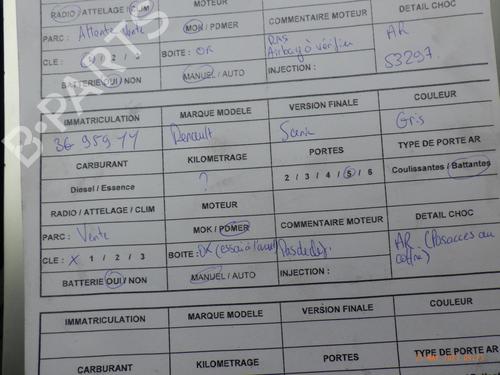 RADIO / ATTELAGE / CLIM MOTEUR DETAIL CHOC
PARC : Attente vente MOK / PDMER COMMENTAIRE MOTEUR AR
CLE : 1 / 2 / 3 BOITE : OK RAS
Airbag à vérifier 53297.
BATTERIE OUI / NON MANUEL / AUTO INJECTION :
IMMATRICULATION MARQUE MODELE VERSION FINALE COULEUR
Renault Scenic Gris
CARBURANT KILOMETRAGE PORTES TYPE DE PORTE AR
Diesel / Essence ? 2 / 3 / 4 / 5 / 6 Coulissantes / Battantes
RADIO / ATTELAGE / CLIM MOTEUR COMMENTAIRE MOTEUR DETAIL CHOC
PARC : Vente MOK / PDMER
CLE : X 1 / 2 / 3 BOITE : OK (essai à l'arrêt) Pas de clef. AR (Pas accès au
coffre)
BATTERIE OUI / NON MANUEL / AUTO INJECTION :
IMMATRICULATION MARQUE MODELE VERSION FINALE COULEUR
CARBURANT KILOMETRAGE PORTES TYPE DE PORTE AR
B-PARTS